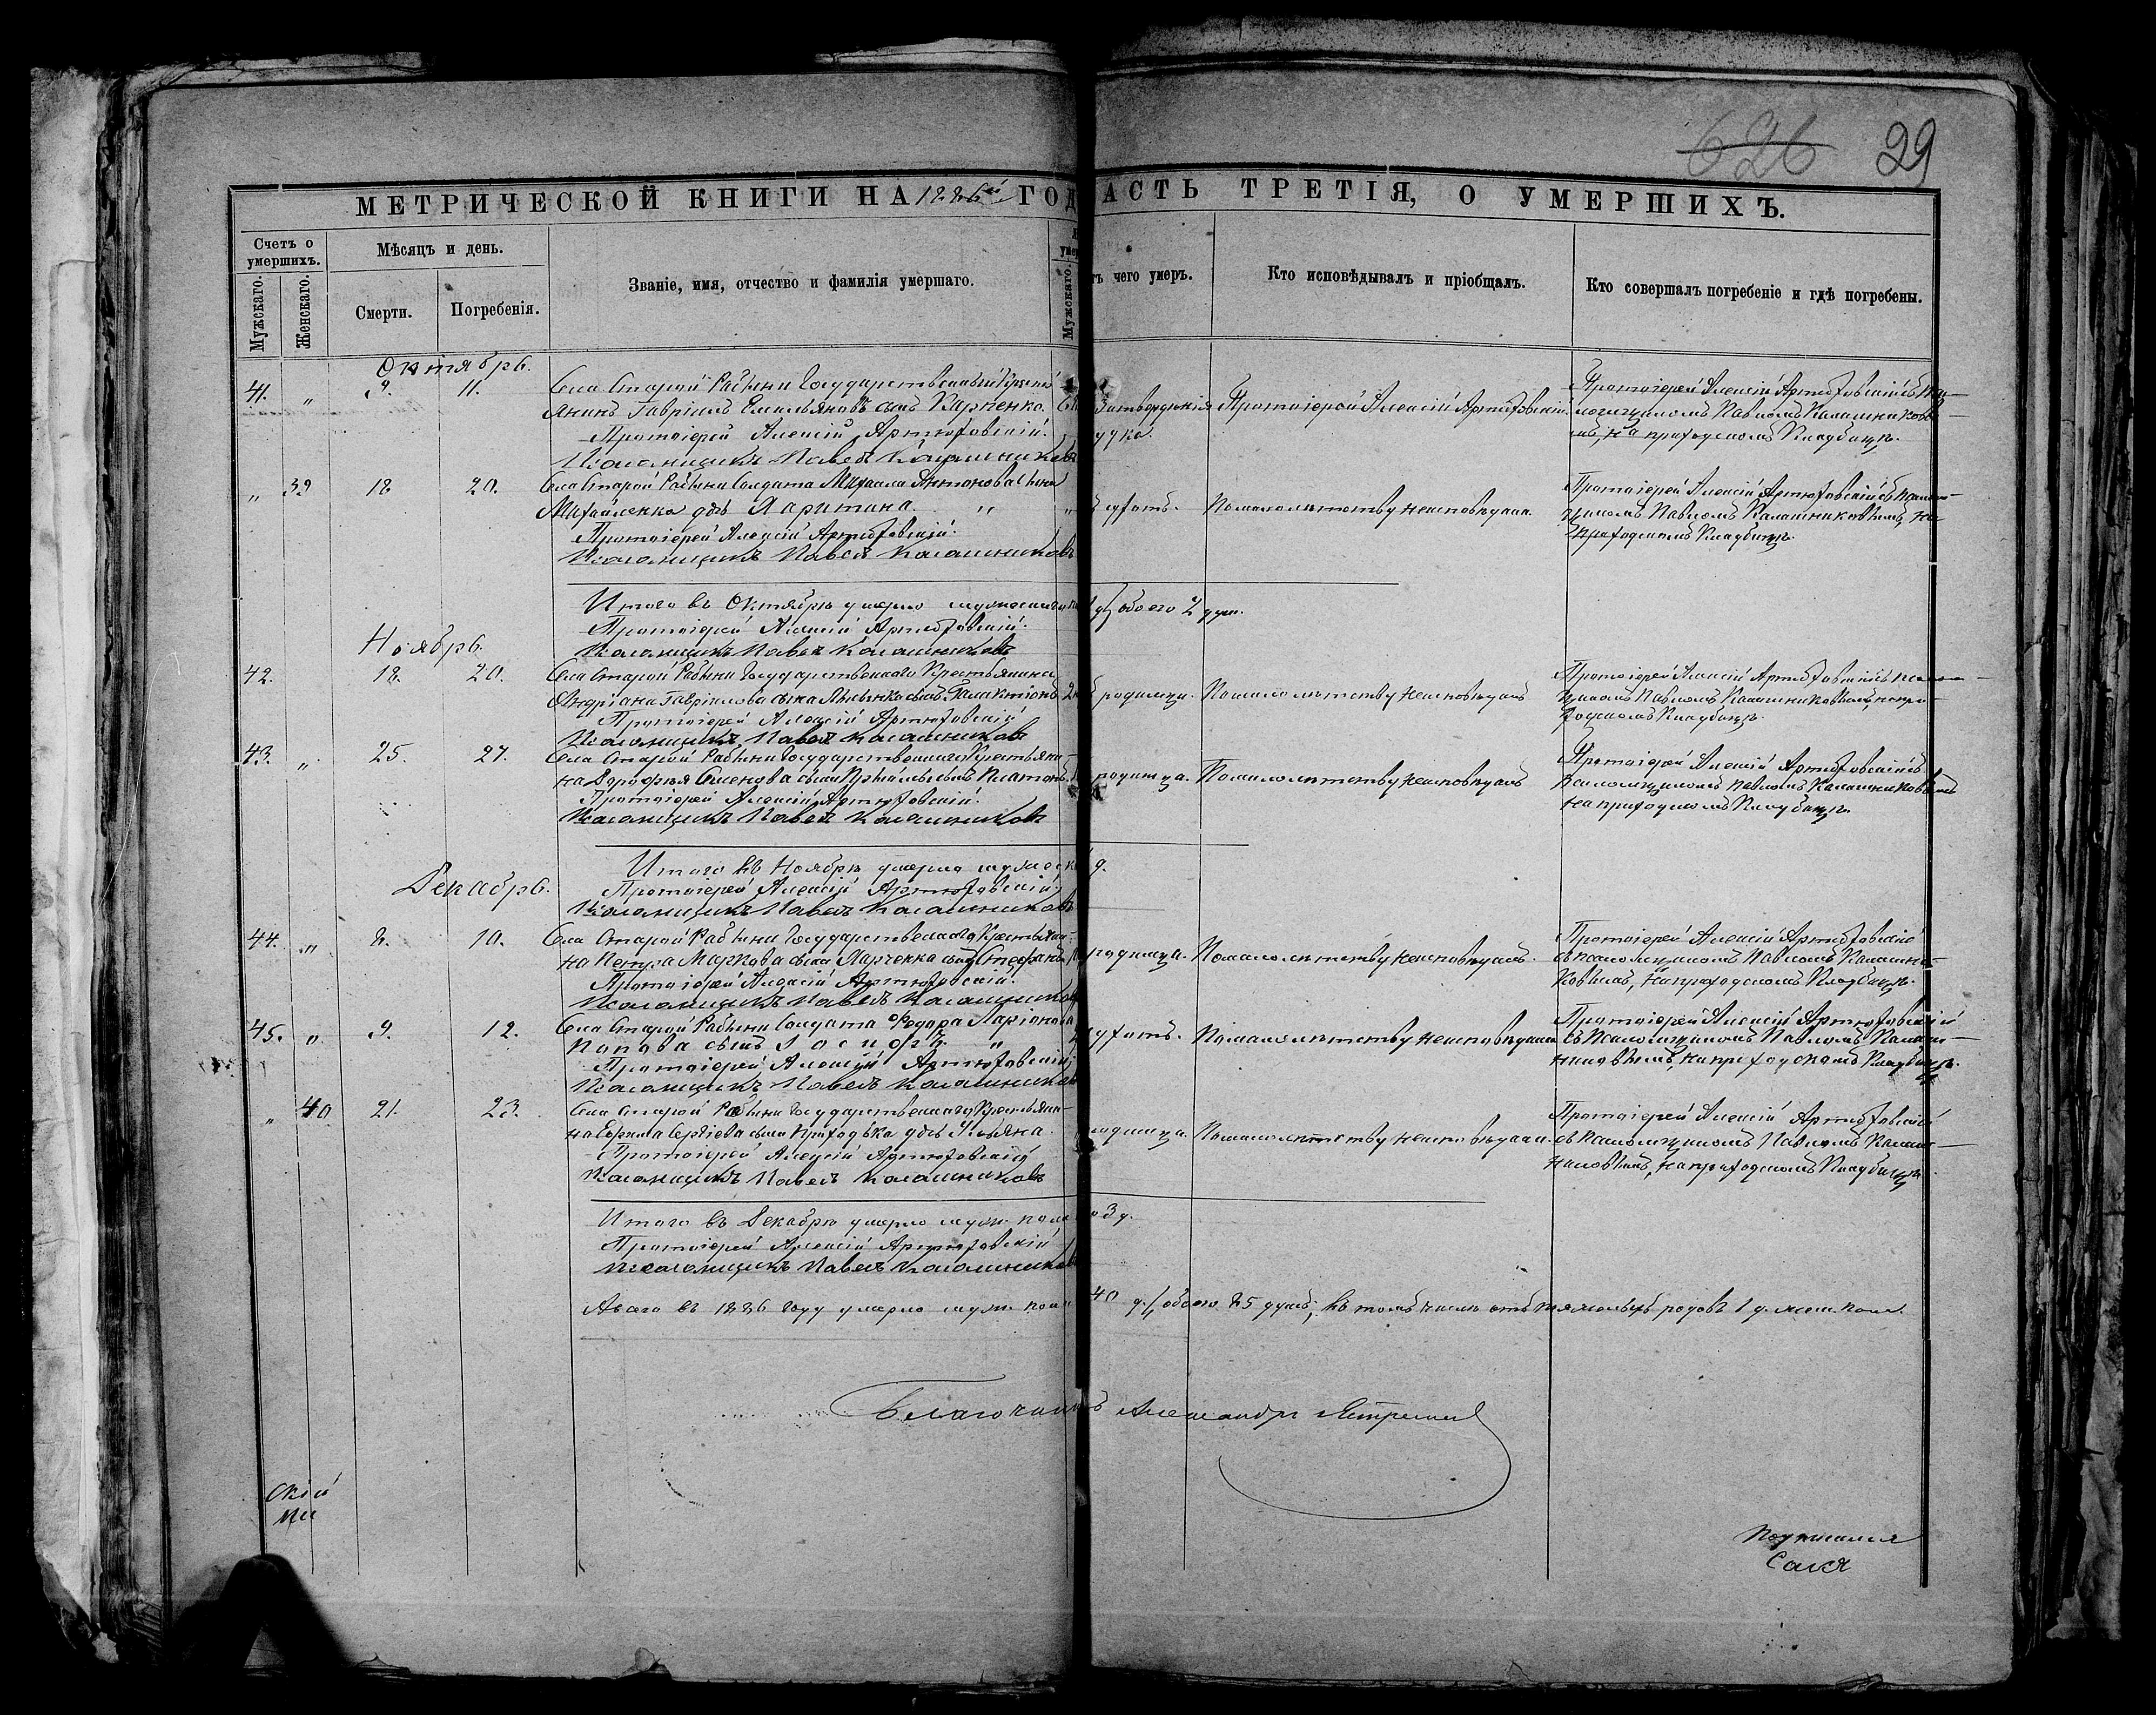 626 29
МЕТРИЧЕСКОЙ КНИГИ НА 1886й ГОД АСТЬ ТРЕТІЯ, О УМЕРШИХЪ.
Счетъ о умершихъ.
Мужскаго.
Женскаго.
Мѣсяцъ и день.
Смерти.
Погребенія.
Званіе, имя, отчество и фамилія умершаго.
Мужскаго.
тъ чего умеръ.
Кто исповѣдывалъ и пріобщалъ.
Кто совершалъ погребеніе и гдѣ погребены.
Октябрь.
41. „ 9. 11.
Села Старой Рябины Государственный Кресть
янинъ Гавріилъ Емельяновъ сынъ Карпенко.
Протоіерей Алексій Артюховскій.
Псаломщикъ Павелъ Калашниковъ
Протоіерей Алексій Артюховскій.
Протоіерей Алексій Артюховскій съ
Павломъ Калашниково
на приходскомъ Кладбищѣ.
„ 39 18 20.
Села Старой Рябины Солдата Михаила Антонова сына
Михайленка дочь Харитина. „
Протоіерей Алексій Артюховскій.
Псаломщикъ Павелъ Калашниковъ
По малолѣтству неисповѣдана.
Протоіерей Алексій Артюховскій съ псалом-
щикомъ Павломъ Калашниковымъ, на
приходскомъ Кладбищѣ.
Итого въ Октябрѣ умерло мужескаго
обоего 2 душ.
Протоіерей Алексій Артюховскій.
Псаломщикъ Павелъ Калашниковъ
Ноябрь.
42. 18. 20.
Села Старой Рябины Государственнаго Крестьянина
Андріана Гавріилова сына сынъ Галактіонъ
Протоіерей Алексій Артюховскій
Псаломщикъ Павелъ Калашниковъ
родимца. По малолѣтству неисповѣданъ
Протоіерей Алексій Артюховскій съ псалом-
щикомъ Павломъ Калашниковымъ, на при-
ходскомъ Кладбищѣ.
43. „ 25. 27.
Села Старой Рябины Государственнаго Крестьяни-
на Дорофея Семенова сына сынъ Платонъ.
Протоіерей Алексій Артюховскій.
Псаломщикъ Павелъ Калашниковъ
родимца. По малолѣтству неисповѣданъ
Протоіерей Алексій Артюховскій съ
псаломщикомъ Павломъ Калашниковымъ
на приходскомъ Кладбищѣ.
Итого въ Ноябрѣ умерло мужеск
д.
Протоіерей Алексій Артюховскій
Псаломщикъ Павелъ Калашниковъ
Декабрь.
44. „ 8. 10.
Села Старой Рябины Государственнаго Крестьяни-
на Петра Маркова сына Марченка сынъ Стефанъ
Протоіерей Алексій Артюховскій.
Псаломщикъ Павелъ Калашниковъ
родимца. По малолѣтству неисповѣданъ.
Протоіерей Алексій Артюховскій
съ псаломщикомъ Павломъ Калашни-
ковымъ, на приходскомъ Кладбищѣ.
45. „ 9. 12.
Села Старой Рябины Солдата Федора Ларіонова
Попова сынъ Іосифъ. „
Протоіерей Алексій Артюховскій
Псаломщикъ Павелъ Калашниковъ
По малолѣтству неисповѣданъ
Протоіерей Алексій Артюховскій
съ Псаломщикомъ Павломъ Калаш-
никовымъ, на приходскомъ Кладбищѣ.
„ 40 21. 23.
Села Старой Рябины Государственнаго Крестьяни-
на Ефима Сергіева сына Приходька дочь Ульяна.
Протоіерей Алексій Артюховскій
Псаломщикъ Павелъ Калашниковъ
родимца. По малолѣтству неисповѣдана.
Протоіерей Алексій Артюховскій
съ псаломщикомъ Павломъ Калаш-
никовымъ, на приходскомъ Кладбищѣ.
Итого въ Декабрѣ умерло муж. пола
3 д.
Протоіерей Алексій Артюховскій
Псаломщикъ Павелъ Калашниковъ
А всего въ 1886 году умерло муж. пола 40 д., обоего 85 душъ; въ томъ числѣ отъ тяжелыхъ родовъ 1 д. жен. пола.
Благочинный Александръ
скій